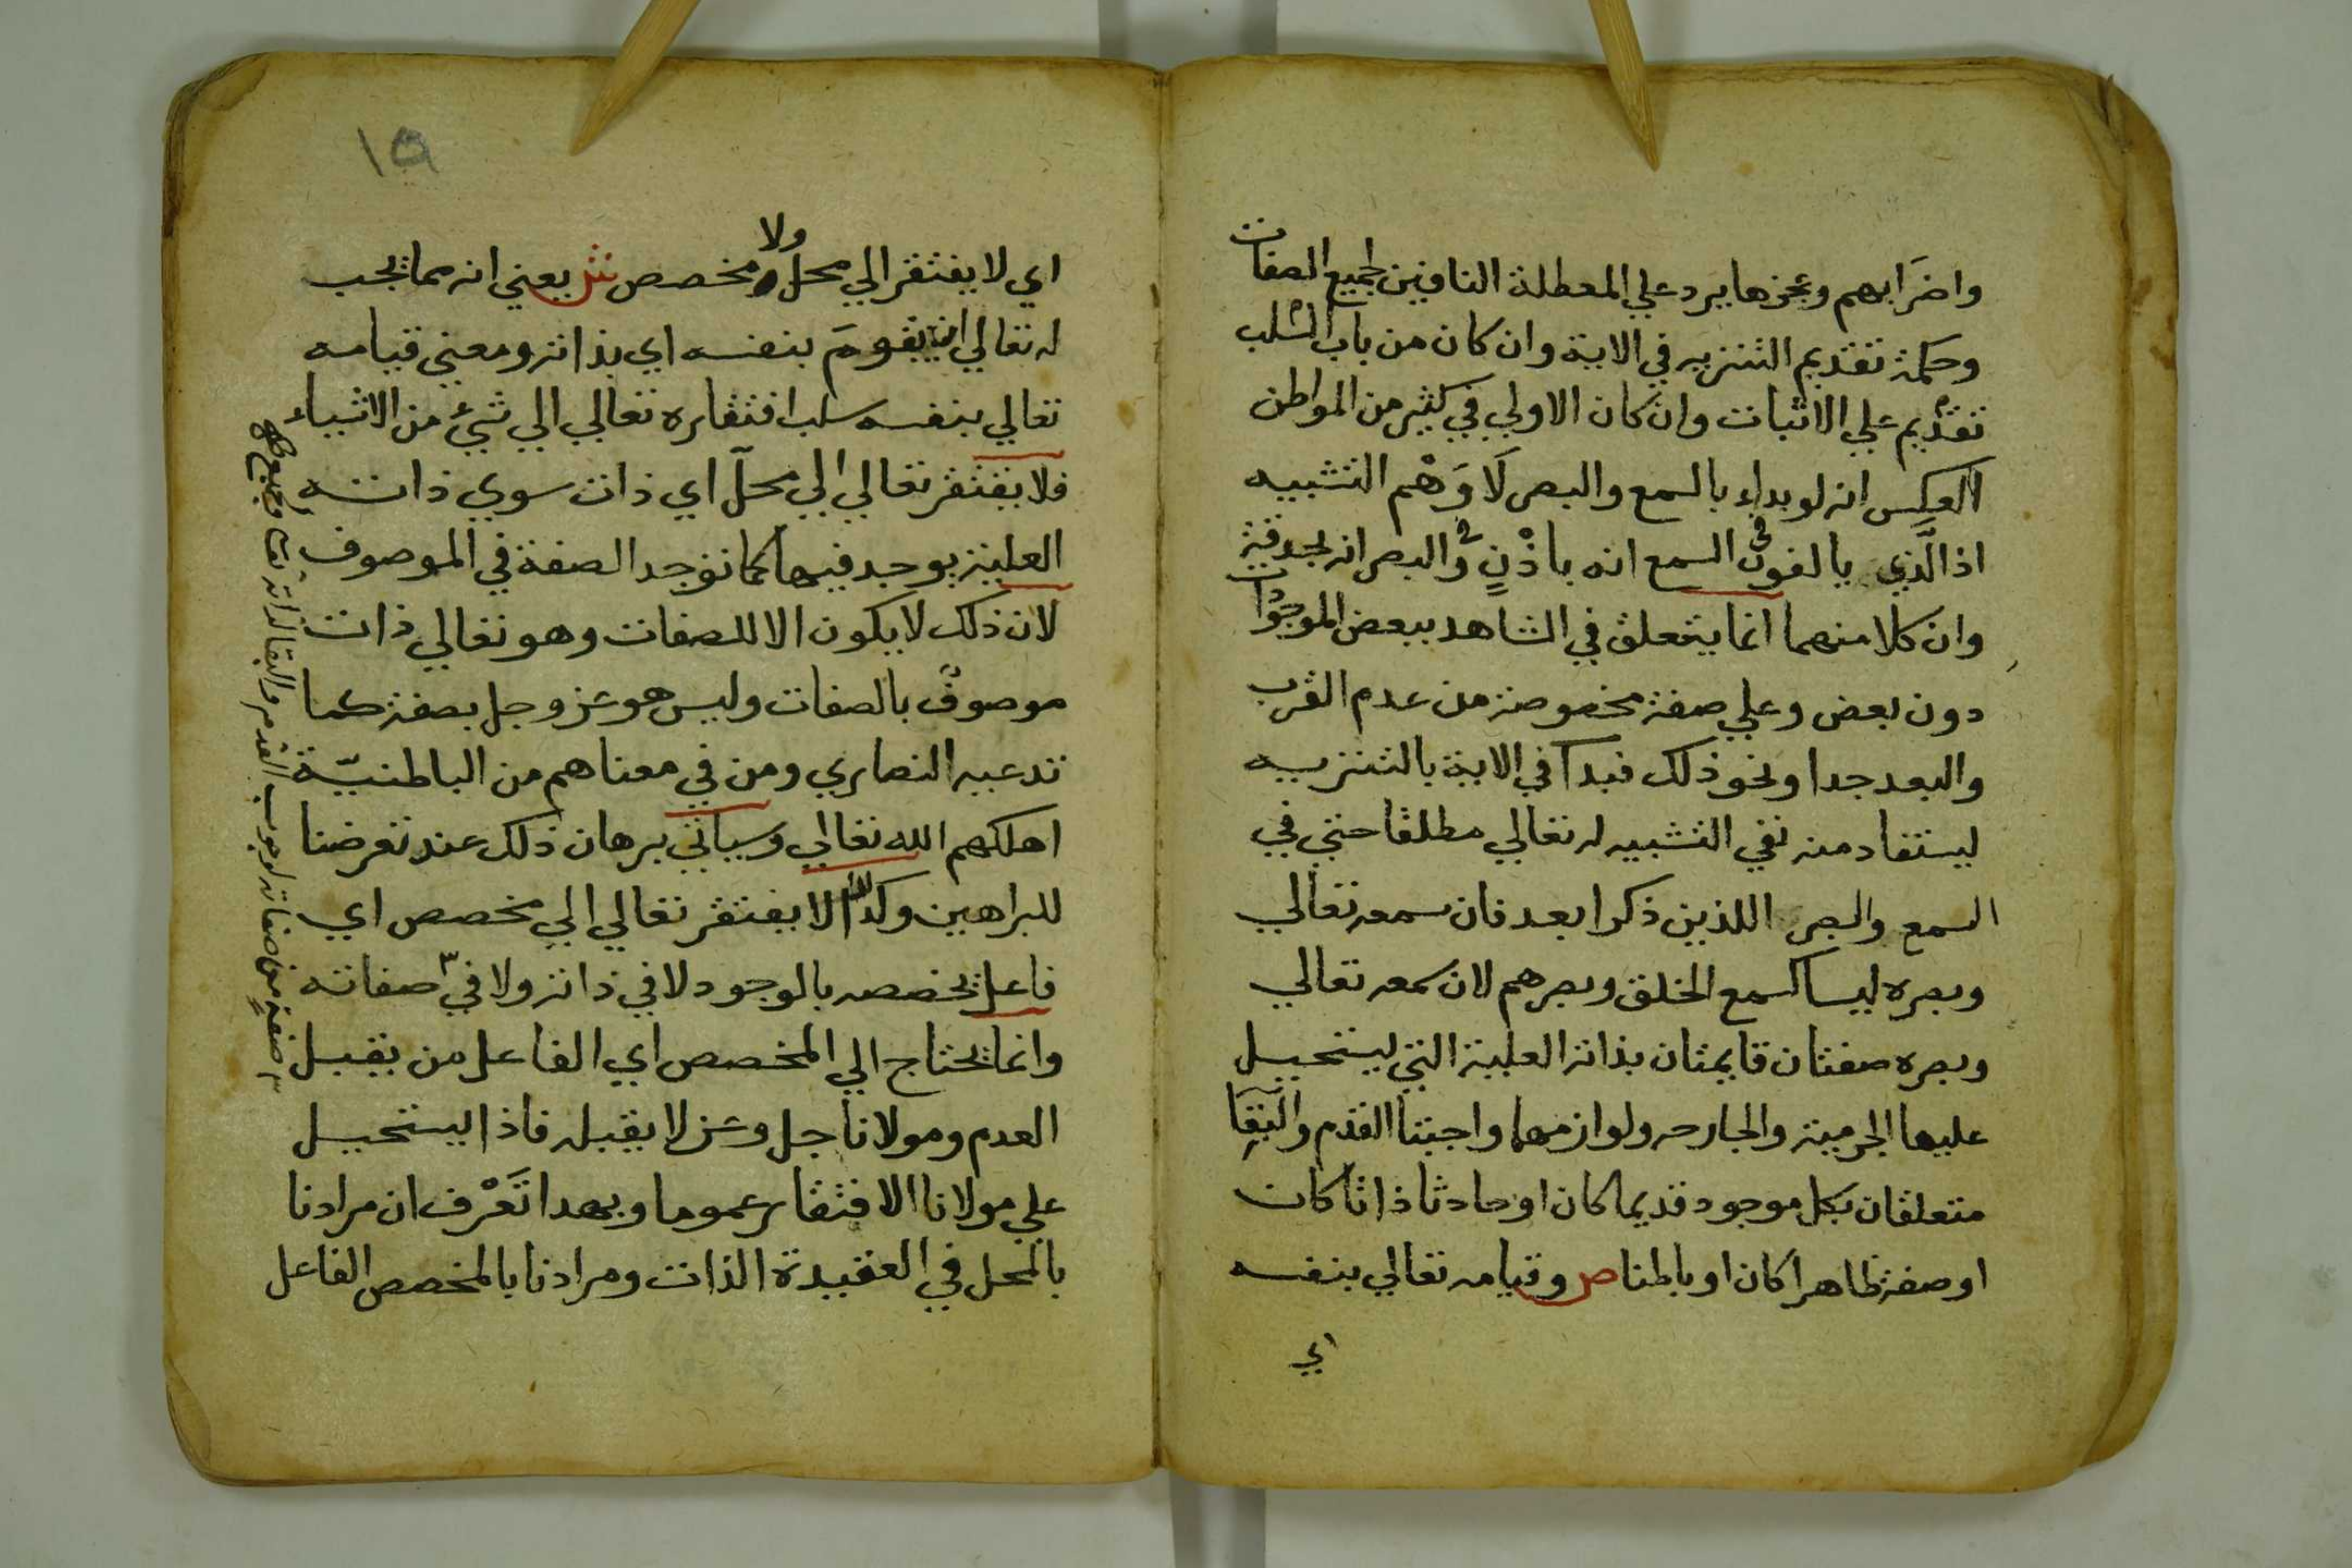 واضرَابهم وعجزها يرد علي المعطلة النافين لجميع الصفات
وحكمة تقديم التنزيه في الاية وان كان من باب السلب
تقديم علي الاثبات وان كان الاولي في كثير من المواطن
العكس انه لو بداء بالسمع والبصر لَاوَهْم التشبيه
اذ الذي يالفون في السمع انه باذْنٍ وفي البصر انه بحدقة
وان كلا منهما انما يتعلق في الشاهد ببعض الموجودات
دون بعض وعلي صفة مخصوصة من عدم القرب
والبعد جدا ونحو ذلك فبدا في الاية بالتنزيه
ليستفاد منه نفي التشبيه له تعالي مطلقا حتي في
السمع والبصر اللذين ذكرا بعد فان سمعه تعالي
وبصره ليسا كسمع الخلق وبصرهم لان سمعه تعالي
وبصره صفتان قايمتان بذاته العلية التي يستحيل
عليها الجرمية والجارحه ولوازمهما واجبتا القدم والبقا
متعلقان بكل موجود قديما كان او حادثا ذاتا كان
او صفة ظاهرا كان او باطنا ص وقيامه تعالي بنفسه
اي
١٥
اي لا يفتقر الي محل ولا مخصص ش يعني انه مما يجب
له تعالي ان يقومَ بنفسه اي بذاته ومعني قيامه
تعالي بنفسه سلب افتقاره تعالي الي شيئ من الاشياء
فلا يفتقر تعالي الي محلّ اي ذات سوي ذاته
العلية يوجد فيها كما توجد الصفة في الموصوف
لان ذلك لا يكون الا للصفات وهو تعالي ذات
موصوف بالصفات وليس هو عز وجل بصفة كما
تدعيه النصاري ومن في معناهم من الباطنيّة
اهلكهم الله تعالي وسياتي برهان ذلك عند تعرضنا
للبراهين وكذا لا يفتقر تعالي الي مخصص اي
فاعل يخصصه بالوجود لا في ذاته ولا في صفاته
وانما يحتاج الي المخصص اي الفاعل من يقبل
العدم ومولانا جل وعز لا يقبله فاذا يستحيل
علي مولانا الافتقار عموما وبهدا تَعْرف ان مرادنا
بالمحل في العقيدة الذات ومرادنا بالمخصص الفاعل
صفة من صفاته لوجوب القدم والبقا لذاته تعالي وجميع